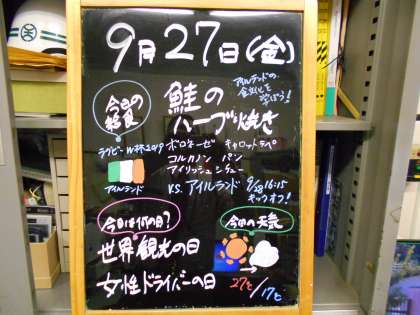 9月27日(金)
アイルランドの
食文化を
学ぼう!
今日の
給食
鮭の
ハーブ焼き
ラグビーW杯2019
ボロネーゼ キャロットラペ
コルカノン パン
アイリッシュシチュー
アイルランド
V.S. アイルランド 9/28 16:15
キックオフ!
今日は何の日?
今日の天気
世界観光の日
女性ドライバーの日
27℃/17℃